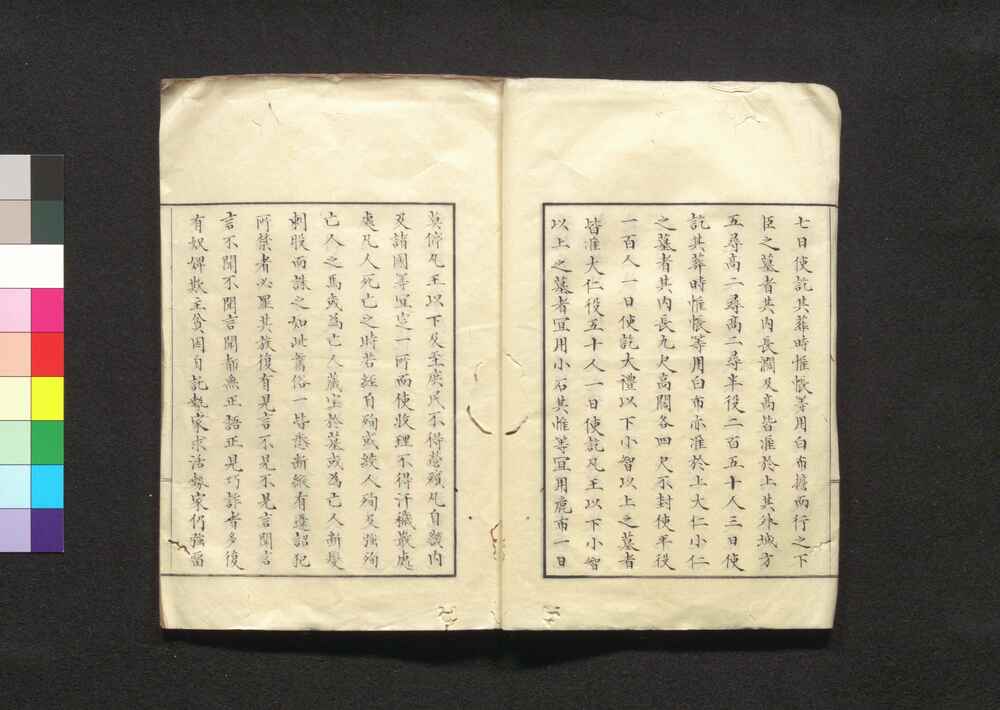 七日使訖其葬時帷帳等用白布擔而行之下
臣之墓者其内長濶及高皆准於上其外域方
五尋高二尋高二尋半役二百五十人三日使
訖其葬時帷帳等用白布亦准於上大仁小仁
之墓者其内長九尺高闊各四尺不封使平役
一百人一日使訖大禮以下小智以上之墓者
皆准大仁役五十人一日使訖凡王以下小智
以上之墓者冝用小石其帷等冝用麁布一日
莫停凡王以下及至庶民不得營殯凡自畿内
及諸國等冝定一所而使收埋不得汙穢散處
處凡人死亡之時若經自殉或絞人殉及強殉
亡人之馬或為亡人藏宝於墓或為亡人断髮
刺股而誄之如此舊俗一皆悉断縱有違詔犯
所禁者必罪其族復有見言不見不見言見聞言
言不聞不聞言聞都無正語正見巧詐者多復
有奴婢欺主貧困自託勢家求活勢家仍強留